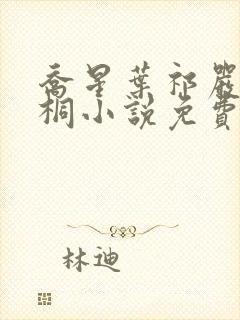 喬星葉祁嚴
桐小說免費
林迪